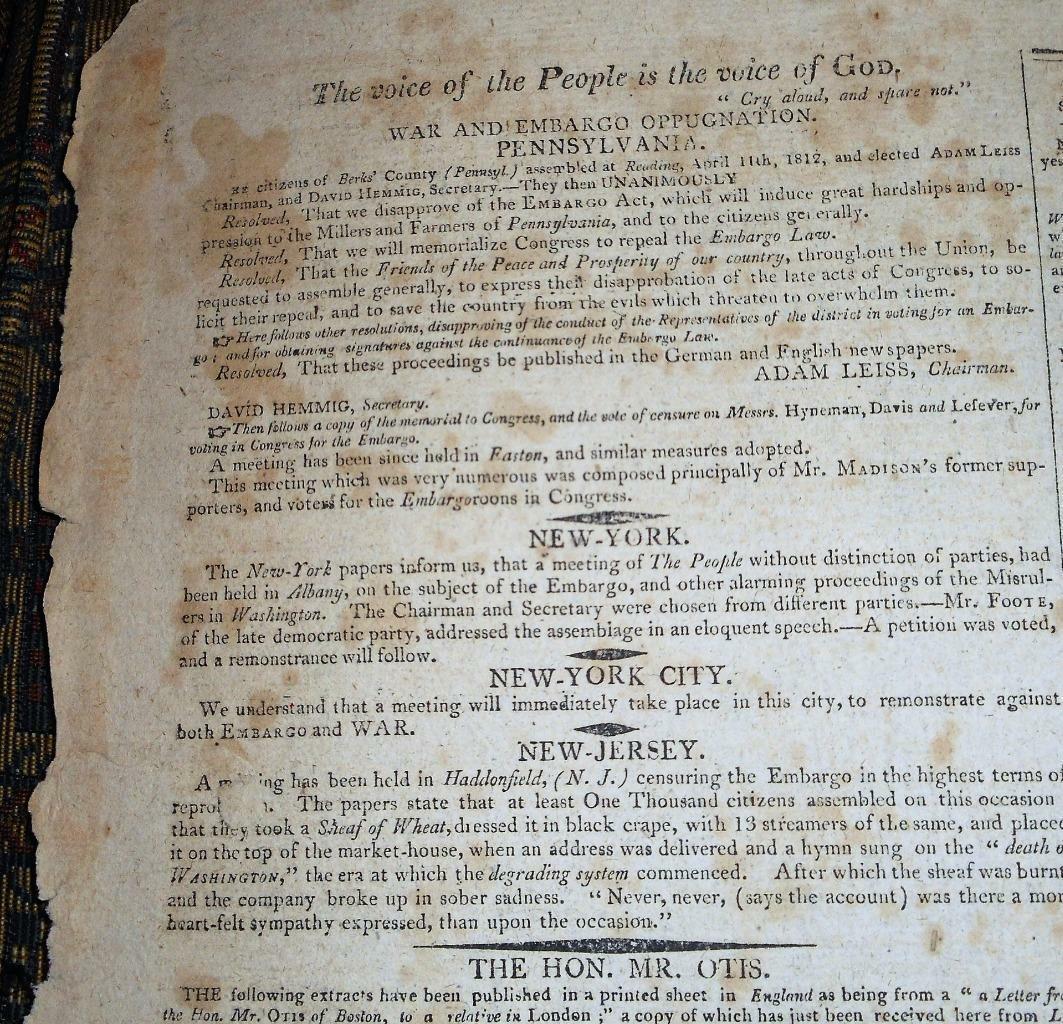 The voice of the People is the voice of GOD.
“ Cry aloud, and spare not.”
WAR AND EMBARGO OPPUGNATION.
PENNSYLVANIA.
citizens of Berks' County (Pennsyl.) assembled at Reading, April 11th, 1812, and elected ADAM LEISS
Chairman, and DAVID HEMMIG, Secretary.—They then UNANIMOUSLY
Resolved, That we disapprove of the EMBARGO ACT, which will induce great hardships and op-
pression to the Millers and Farmers of Pennsylvania, and to the citizens generally.
Resolved, That we will memorialize Congress to repeal the Embargo Law.
Resolved, That the Friends of the Peace and Prosperity of our country, throughout the Union, be
requested to assemble generally, to express their disapprobation of the late acts of Congress, to so-
licit their repeal, and to save the country from the evils which threaten to overwhelm them.
☞ Here follows other resolutions, disapproving of the conduct of the Representatives of the district in voting for an Embar-
go; and for obtaining signatures against the continuance of the Embargo Law.
Resolved, That these proceedings be published in the German and English newspapers.
ADAM LEISS, Chairman.
DAVID HEMMIG, Secretary.
☞ Then follows a copy of the memorial to Congress, and the vote of censure on Messrs. Hyneman, Davis and Lefever, for
voting in Congress for the Embargo.
A meeting has been since held in Easton, and similar measures adopted.
This meeting which was very numerous was composed principally of Mr. MADISON's former sup-
porters, and voters for the Embargoroons in Congress.
NEW-YORK.
The New-York papers inform us, that a meeting of The People without distinction of parties, had
been held in Albany, on the subject of the Embargo, and other alarming proceedings of the Misrul-
ers in Washington. The Chairman and Secretary were chosen from different parties.—Mr. FOOTE,
of the late democratic party, addressed the assemblage in an eloquent speech.—A petition was voted,
and a remonstrance will follow.
NEW-YORK CITY.
We understand that a meeting will immediately take place in this city, to remonstrate against
both EMBARGO and WAR.
NEW-JERSEY.
A ing has been held in Haddonfield, (N. J.) censuring the Embargo in the highest terms of
reprol The papers state that at least One Thousand citizens assembled on this occasion
that they took a Sheaf of Wheat, dressed it in black crape, with 13 streamers of the same, and placed
it on the top of the market-house, when an address was delivered and a hymn sung on the “ death o
WASHINGTON,” the era at which the degrading system commenced. After which the sheaf was burnt
and the company broke up in sober sadness. “ Never, never, (says the account) was there a mor
heart-felt sympathy expressed, than upon the occasion.”
THE HON. MR. OTIS.
THE following extracts have been published in a printed sheet in England as being from a “ a Letter fr
the Hon. Mr. OTIS of Boston, to a relative in London ;” a copy of which has just been received here from
yes